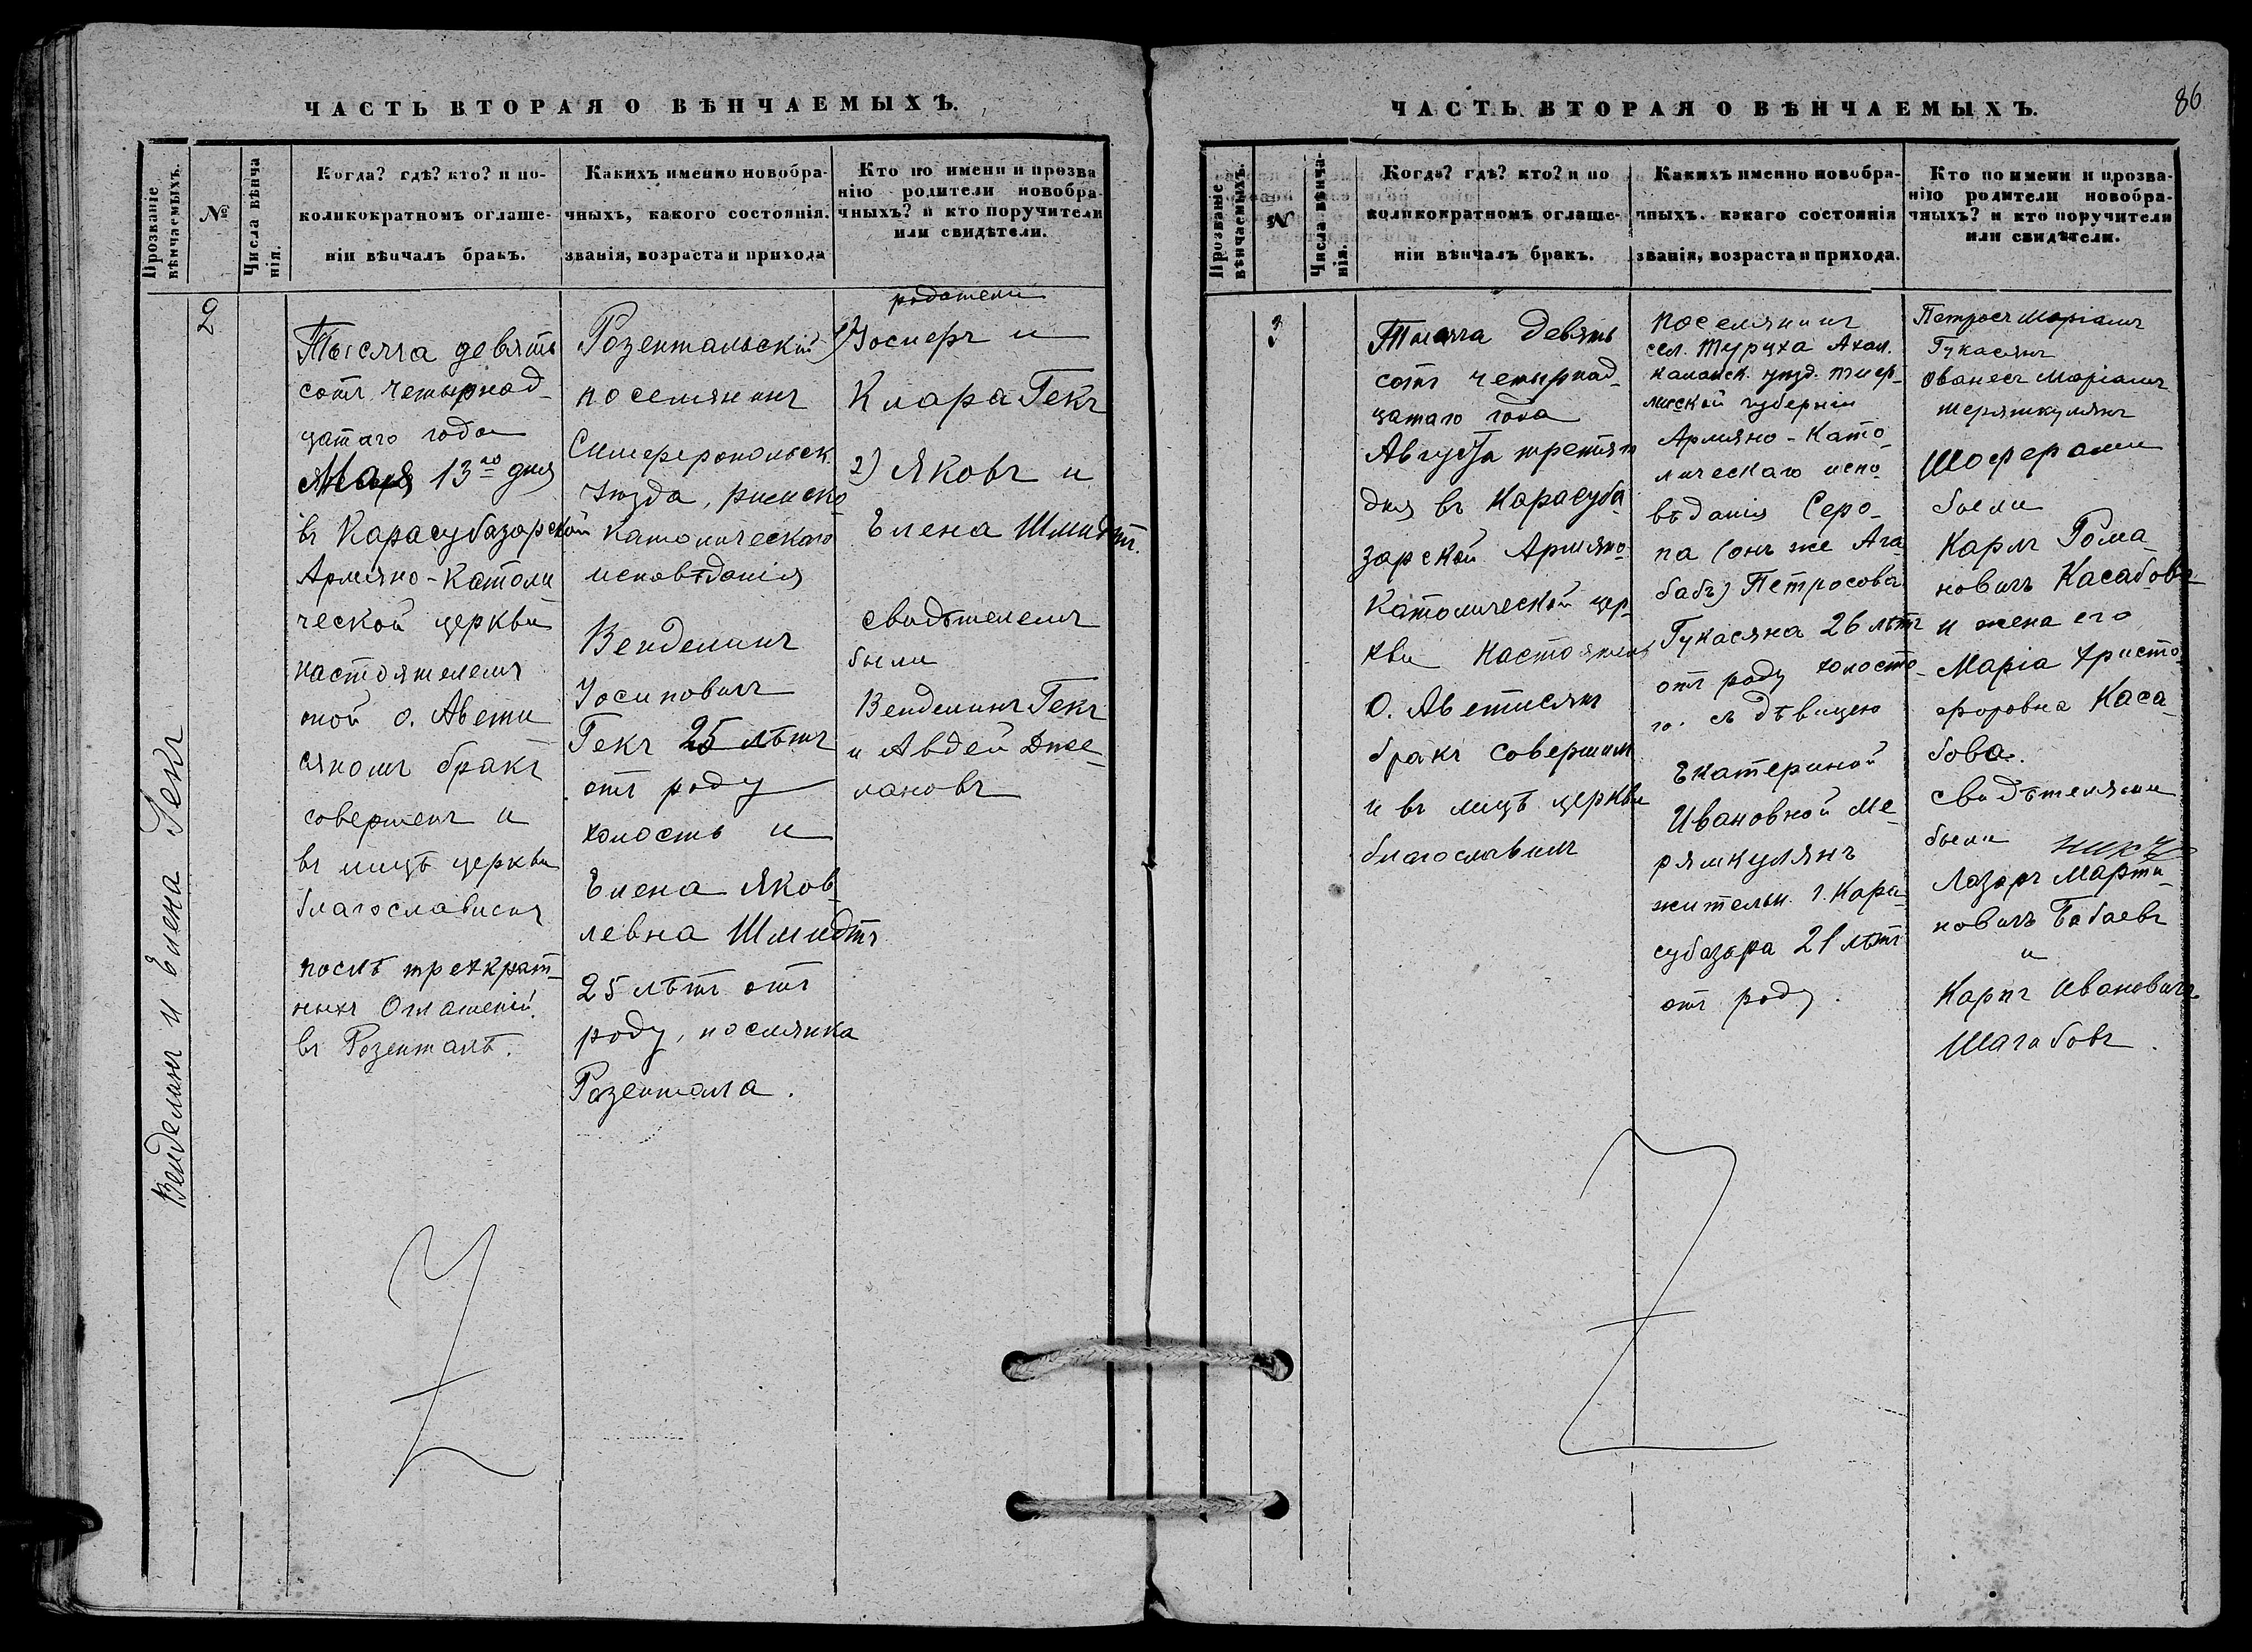 ЧАСТЬ ВТОРАЯ О ВѢНЧАЕМЫХЪ.
Прозваніе
вѣнчаемыхъ.
№
Числа вѣнча
нія.
Когда? гдѣ? кто? и по-
коликократномъ оглаше-
ніи вѣнчалъ бракъ.
Какихъ именно новобра-
чныхъ, какого состоянія.
званія, возраста и прихода
Кто по имени и прозва
нію родители новобра-
чныхъ? и кто поручители
или свидѣтели.
Венделинъ и Елена Гекъ
2
Тысяча девять
сотъ четырнад-
цатаго года
Мая 13го дня
въ Карасубазарской
Армяно-Католи
ческой церкви
настоятелемъ
оной о. Авети
сяномъ бракъ
совершенъ и
въ лицѣ церкви
благославленъ
послѣ трехкрат-
ныхъ Оглашеній
въ Розенталѣ.
Розентальскій
поселянинъ
Симферопольск.
уѣзда, римско
католическаго
исповѣданія
Венделинъ
Іосиповичъ
Гекъ 25 лѣтъ
отъ роду
холостъ и
Елена Яков
левна Шмидтъ
25 лѣтъ отъ
роду, поселянка
Розенталя.
родители
1) Іосифъ и
Клара Гекъ
2) Яковъ и
Елена Шмидтъ.
свидѣтелемъ
были
Венделинъ Гекъ
и Авдей Дже-
лановъ
ЧАСТЬ ВТОРАЯ О ВѢНЧАЕМЫХЪ.
86
Прозваніе
вѣнчаемыхъ.
№
Числа вѣнча-
нія.
Когда? гдѣ? кто? и по
коликократномъ оглаше-
ніи вѣнчалъ бракъ.
Какихъ именно новобра-
чныхъ. какаго состоянія
званія, возраста и прихода.
Кто по имени и прозва-
нію родители новобра-
чныхъ? и кто поручители
или свидѣтели.
3
Тысяча девять
сотъ четырнад-
цатаго года
Августа третяго
дня въ Карасуба
зарской Армяно-
Католической цер-
кви Настоятель
О. Аветисянъ
бракъ совершилъ
и въ лицѣ церкви
благославилъ
поселянинъ
сел. Туруха Ахал.
калакск. уѣзд. Тиф-
лисской губерніи
Армяно-Като-
лическаго испо-
вѣданія Серо-
па (онъ же Ага
бабъ) Петросова
Гукасяна 26 лѣтъ
отъ роду холосто-
го. съ дѣвицею
Екатериной
Ивановной Ме-
рямкулянъ
жительн. г. Кара-
субазара 21 лѣтъ
отъ роду.
Петросъ Маріамъ
Гукасянъ
Ованесъ Маріамъ
Мерямкулянъ
Шоферами
были
Карлъ Рома-
новичъ Касабовъ
и жена его
Марія Христо-
форовна Каса-
бова.
свидѣтелями
были
Лазарь Марти-
новичъ Бабаевъ
и
Карпъ Ивановичъ
Шагабовъ.